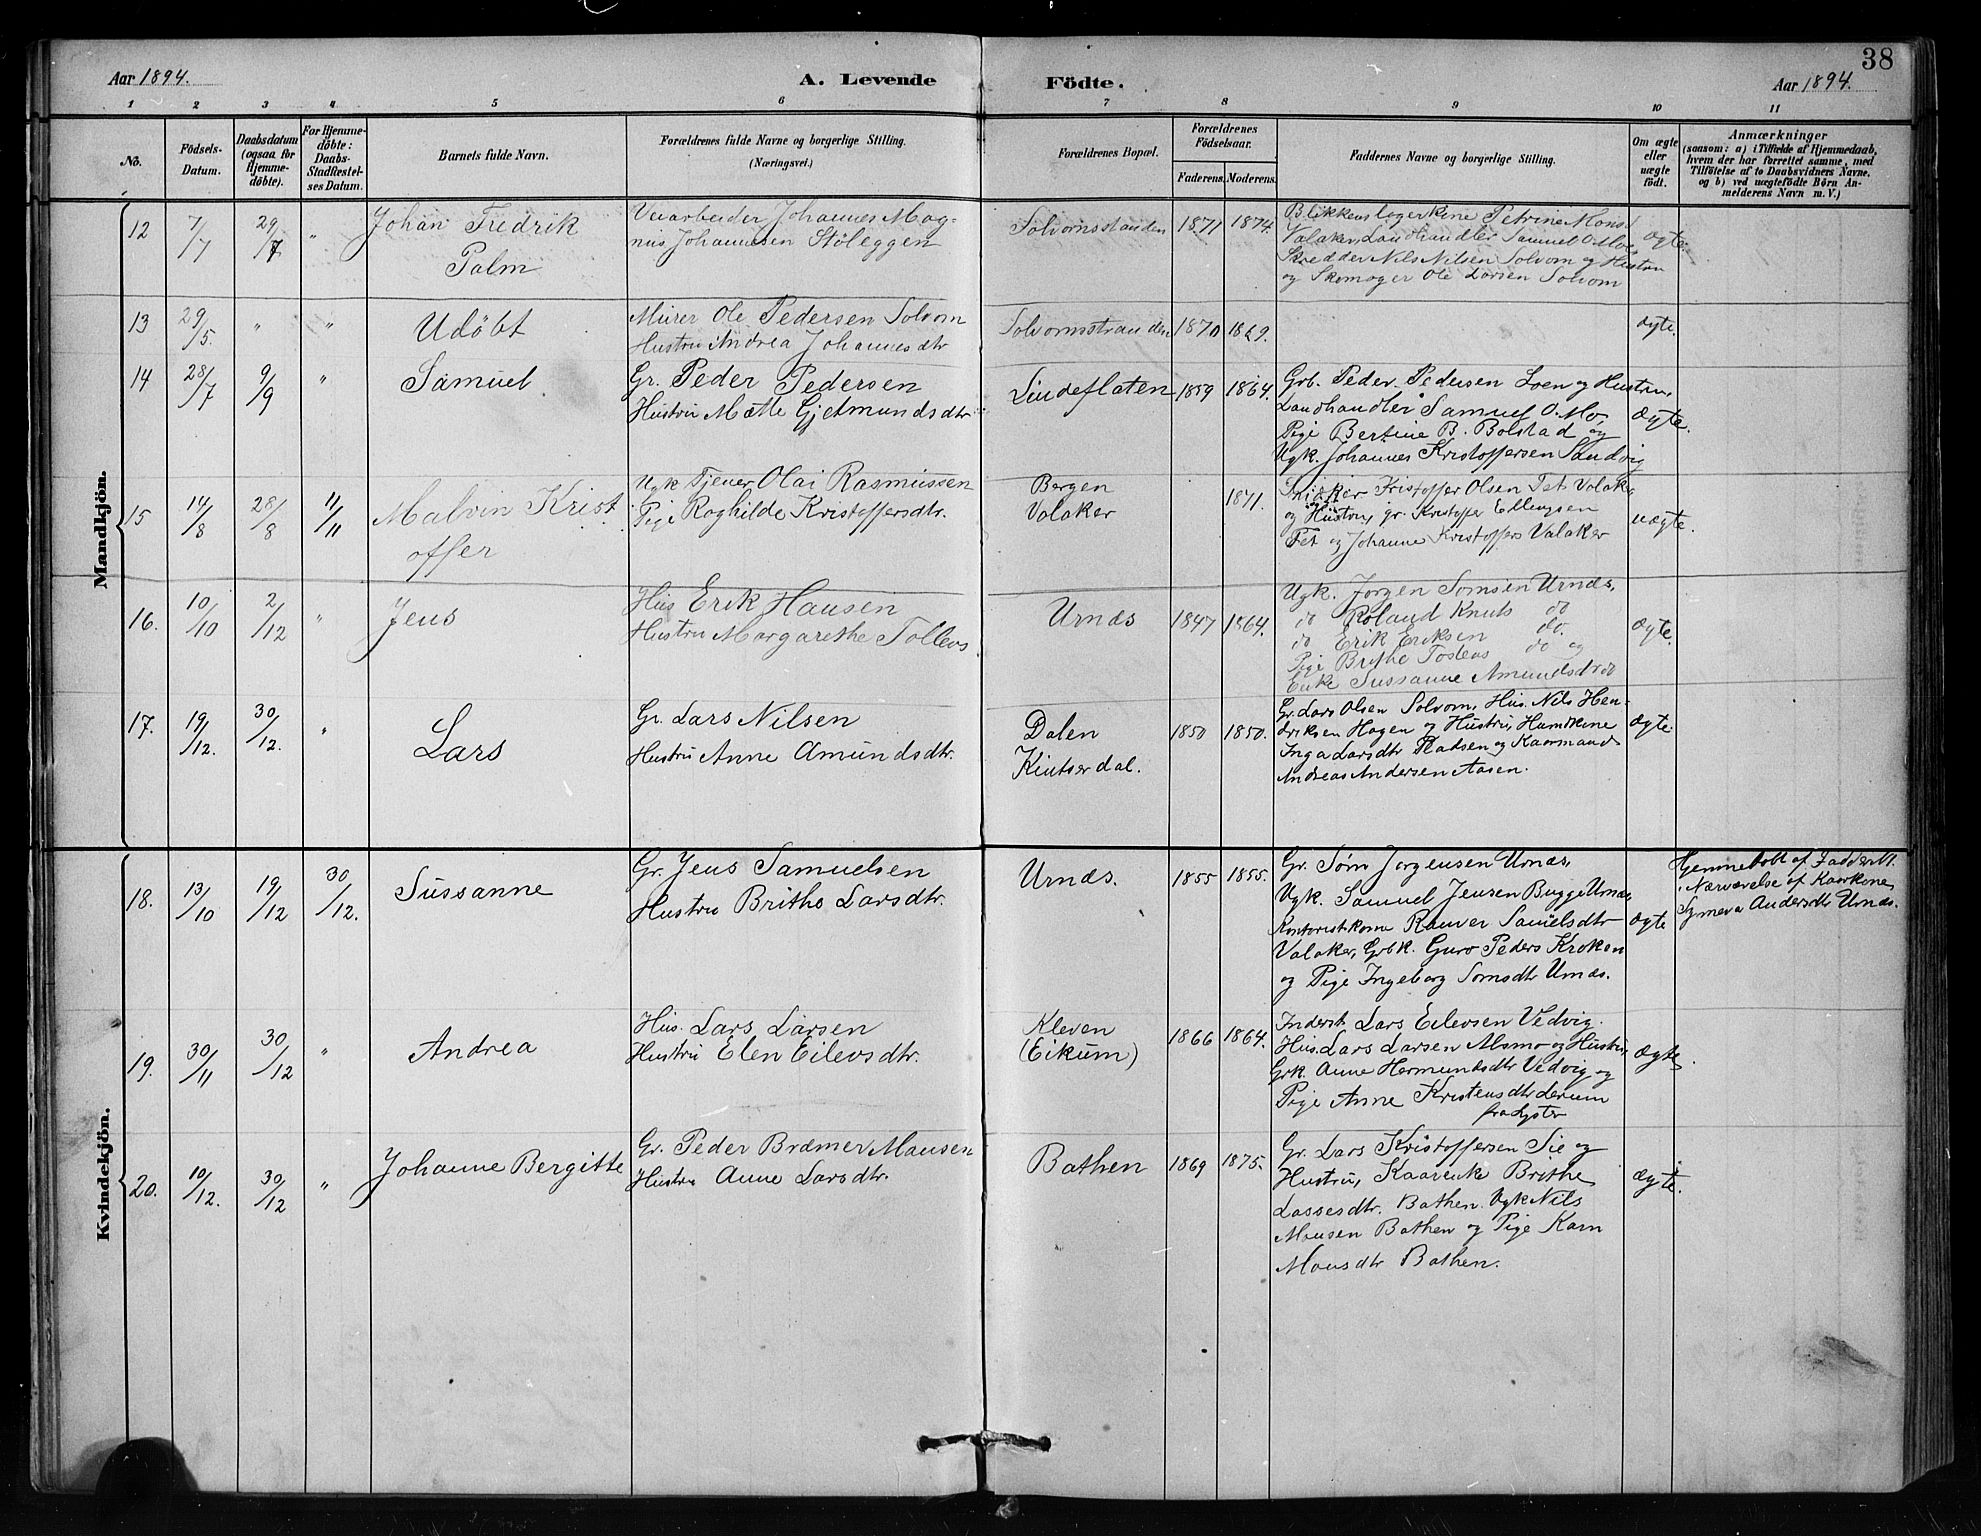 38
Aar 1894.
A. Levende
Födte.
Aar 1894.
1 2 3 4 5 6 7 8 9 10 11
No.
Födsels-
Datum.
Daabsdatum
(ogsaa for
Hjemme-
döbte).
For Hjemme-
döbte:
Daabs-
Stadfæstel-
ses Datum.
Barnets fulde Navn.
Forældrenes fulde Navne og borgerlige Stilling.
(Næringsvei.)
Forældrenes Bopæl.
Forældrenes
Födselsaar.
Faderens. Moderens.
Faddernes Navne og borgerlige Stilling.
Om ægte
eller
uægte
födt.
Anmærkninger
(saasom: a) i Tilfælde af Hjemmedaab,
hvem der har forrettet samme, med
Tilföielse af to Daabsvidners Navne,
og b) ved uægtefödte Börn An-
melderens Navn m. V.)
Mandkjön.
12
7/7
29/7
"
Johan Fredrik
Palm
Veiarbeider Johannes Mag-
nus Johannesen Stöleggen
Solvornsstranden
1871
1874.
Petrine Mons
Valaker, Landhandler Samuel O. Moe
Skredder Nils Nilsen Solvorn og Hustru
og Skomager Ole Larsen Solvorn
ægte.
13
29/5.
"
"
Udöbt
Murer Ole Pedersen Solvorn
Hustru Andrea Johannesdtr
Solvornsstranden
1870
1869.
ægte.
14
28/7
9/9
"
Samuel
Gr. Peder Pedersen
Hustru Mætte Gjetmundsdtr.
Lindeflaten
1859
1864.
Grb. Peder Pedersen Loen og Hustru,
Landhandler Samuel O. Mo,
Pige Bertine B. Bolstad og
Ugk. Johannes Kristoffersen Sandvig
ægte.
15
14/8
28/8
11/11
Malvin Krist
offer
Ugk Tjener Olai Rasmussen
Pige Raghilde Kristoffersdtr.
Bergen
Valaker
1871.
Snikker Kristoffer Olsen Fet Valaker
og Hustru, gr. Kristoffer Ellingsen
Fet og Johanne Kristoffers Valaker
uægte.
16.
10/10
2/12
"
Jens
Hus Erik Hansen
Hustru Margarethe Tollevs.
Urnæs
1847
1864.
Ugk. Jörgen Sörnsen Urnæs,
do Roland Knuts do
do Erik Eriksen do.
Pige Brithe Tostens do og
Enke Sussanne Amundsdtr do
ægte.
17.
19/12.
30/12.
"
Lars
Gr. Lars Nilsen
Hustru Anne Amundsdtr.
Dalen
Kintserdal.
1850
1850.
Gr. Lars Olsen Solvorn, Hus. Nils Hen-
driksen Hagen og Hustru, Huusm
Inga Larsdtr Pladsen og Kaarmand
Andreas Andersen Aasen.
ægte.
Kvindekjön.
18.
13/10
19/12
30/12.
Sussanne
Gr. Jens Samuelsen
Hustru Brithe Larsdtr.
Urnæs.
1855
1855.
Gr. Sörn Jörgensen Urnæs,
Ugk. Samuel Jensen Bugge Urnæs,
Kontoristkone Ranver Samuelsdtr
Valaker, Grbk. Guro Peders Kroken
og Pige Ingeborg Sörnsdtr Urnæs.
ægte
Hjemmedöbt af Fadderen.
i Nærværelse af Kaarkone
Synneva Andersdtr Urnæs.
19.
30/11
30/12
"
Andrea
Hus. Lars Larsen
Hustru Elen Eilevsdtr.
Kleven
(Eikum)
1866
1864.
Inderst. Lars Eilevsen Vedvig.
Hus. Lars Larsen Alsmo og Hustru,
Grk. Anne Hermundsdtr Vedvig og
Pige Anne Kristensdtr Lerum
fra Lyster
ægte
20.
10/12.
30/12
"
Johanne Bergitte
Gr. Peder Bræmer Mansen
Hustru Anne Larsdtr.
Bathen
1869
1875.
Gr. Lars Kristoffersen Sie og
Hustru, Kaarenke Brithe
Lassesdtr. Bathen Ugk Nils
Monsen Bathen og Pige Karn
Monsdtr Bathen.
ægte.